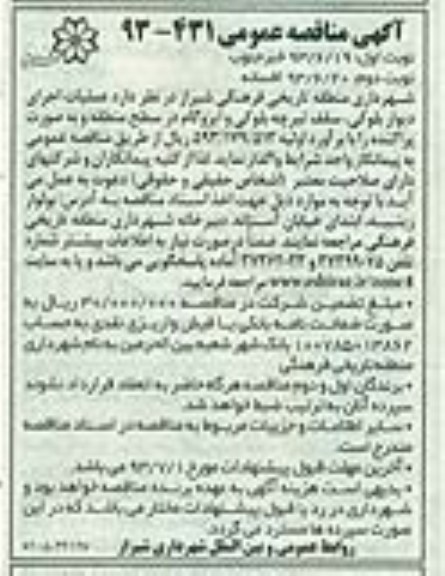 آگهی مناقصه عمومی ۴۳۱-۹۳
نوبت اول: ۹۳/۶/۱۹ خبر جنوب
نوبت دوم: ۹۳/۶/۲۰ افسانه
شهرداری منطقه تاریخی فرهنگی شیراز در نظر دارد عملیات اجرای
دیوار بلوکی، سقف تیرچه بلوکی و ایزوگام در سطح منطقه و به صورت
پراکنده را با برآورد اولیه ریال از طریق مناقصه عمومی
به پیمانکار واجد شرایط واگذار نماید. لذا از کلیه پیمانکاران و شرکتهای
دارای صلاحیت معتبر (اشخاص حقیقی و حقوقی) دعوت به عمل می
آید با توجه به موارد ذیل جهت اخذ اسناد مناقصه به آدرس: بولوار
ابتدای خیابان دبیرخانه شهرداری منطقه تاریخی
فرهنگی مراجعه نمایند. ضمناً در صورت نیاز به اطلاعات بیشتر شماره
تلفن آماده پاسخگویی می باشد و یا به سایت
مراجعه فرمایید.
• مبلغ تضمین شرکت در مناقصه ۳۰/۰۰۰/۰۰۰ ریال به
صورت ضمانت نامه بانکی یا فیش واریزی نقدی به حساب
۱۰۰۷۸۵۰۱۳۸۶۲ بانک شهر شعبه بین الحرمین به نام شهرداری
منطقه تاریخی فرهنگی
• برندگان اول و دوم مناقصه هرگاه حاضر به انعقاد قرارداد نشوند
سپرده آنان به ترتیب ضبط خواهد شد.
• سایر اطلاعات و جزییات مربوط به مناقصه در اسناد مناقصه
مندرج است.
• آخرین مهلت قبول پیشنهادات مورخ ۹۳/۷/۱ می باشد.
• بدیهی است هزینه آگهی به عهده برنده مناقصه خواهد بود و
شهرداری در رد یا قبول پیشنهادات مختار می باشد که در این
صورت سپرده ها مسترد می گردد.
روابط عمومی و بین الملل شهرداری شیراز